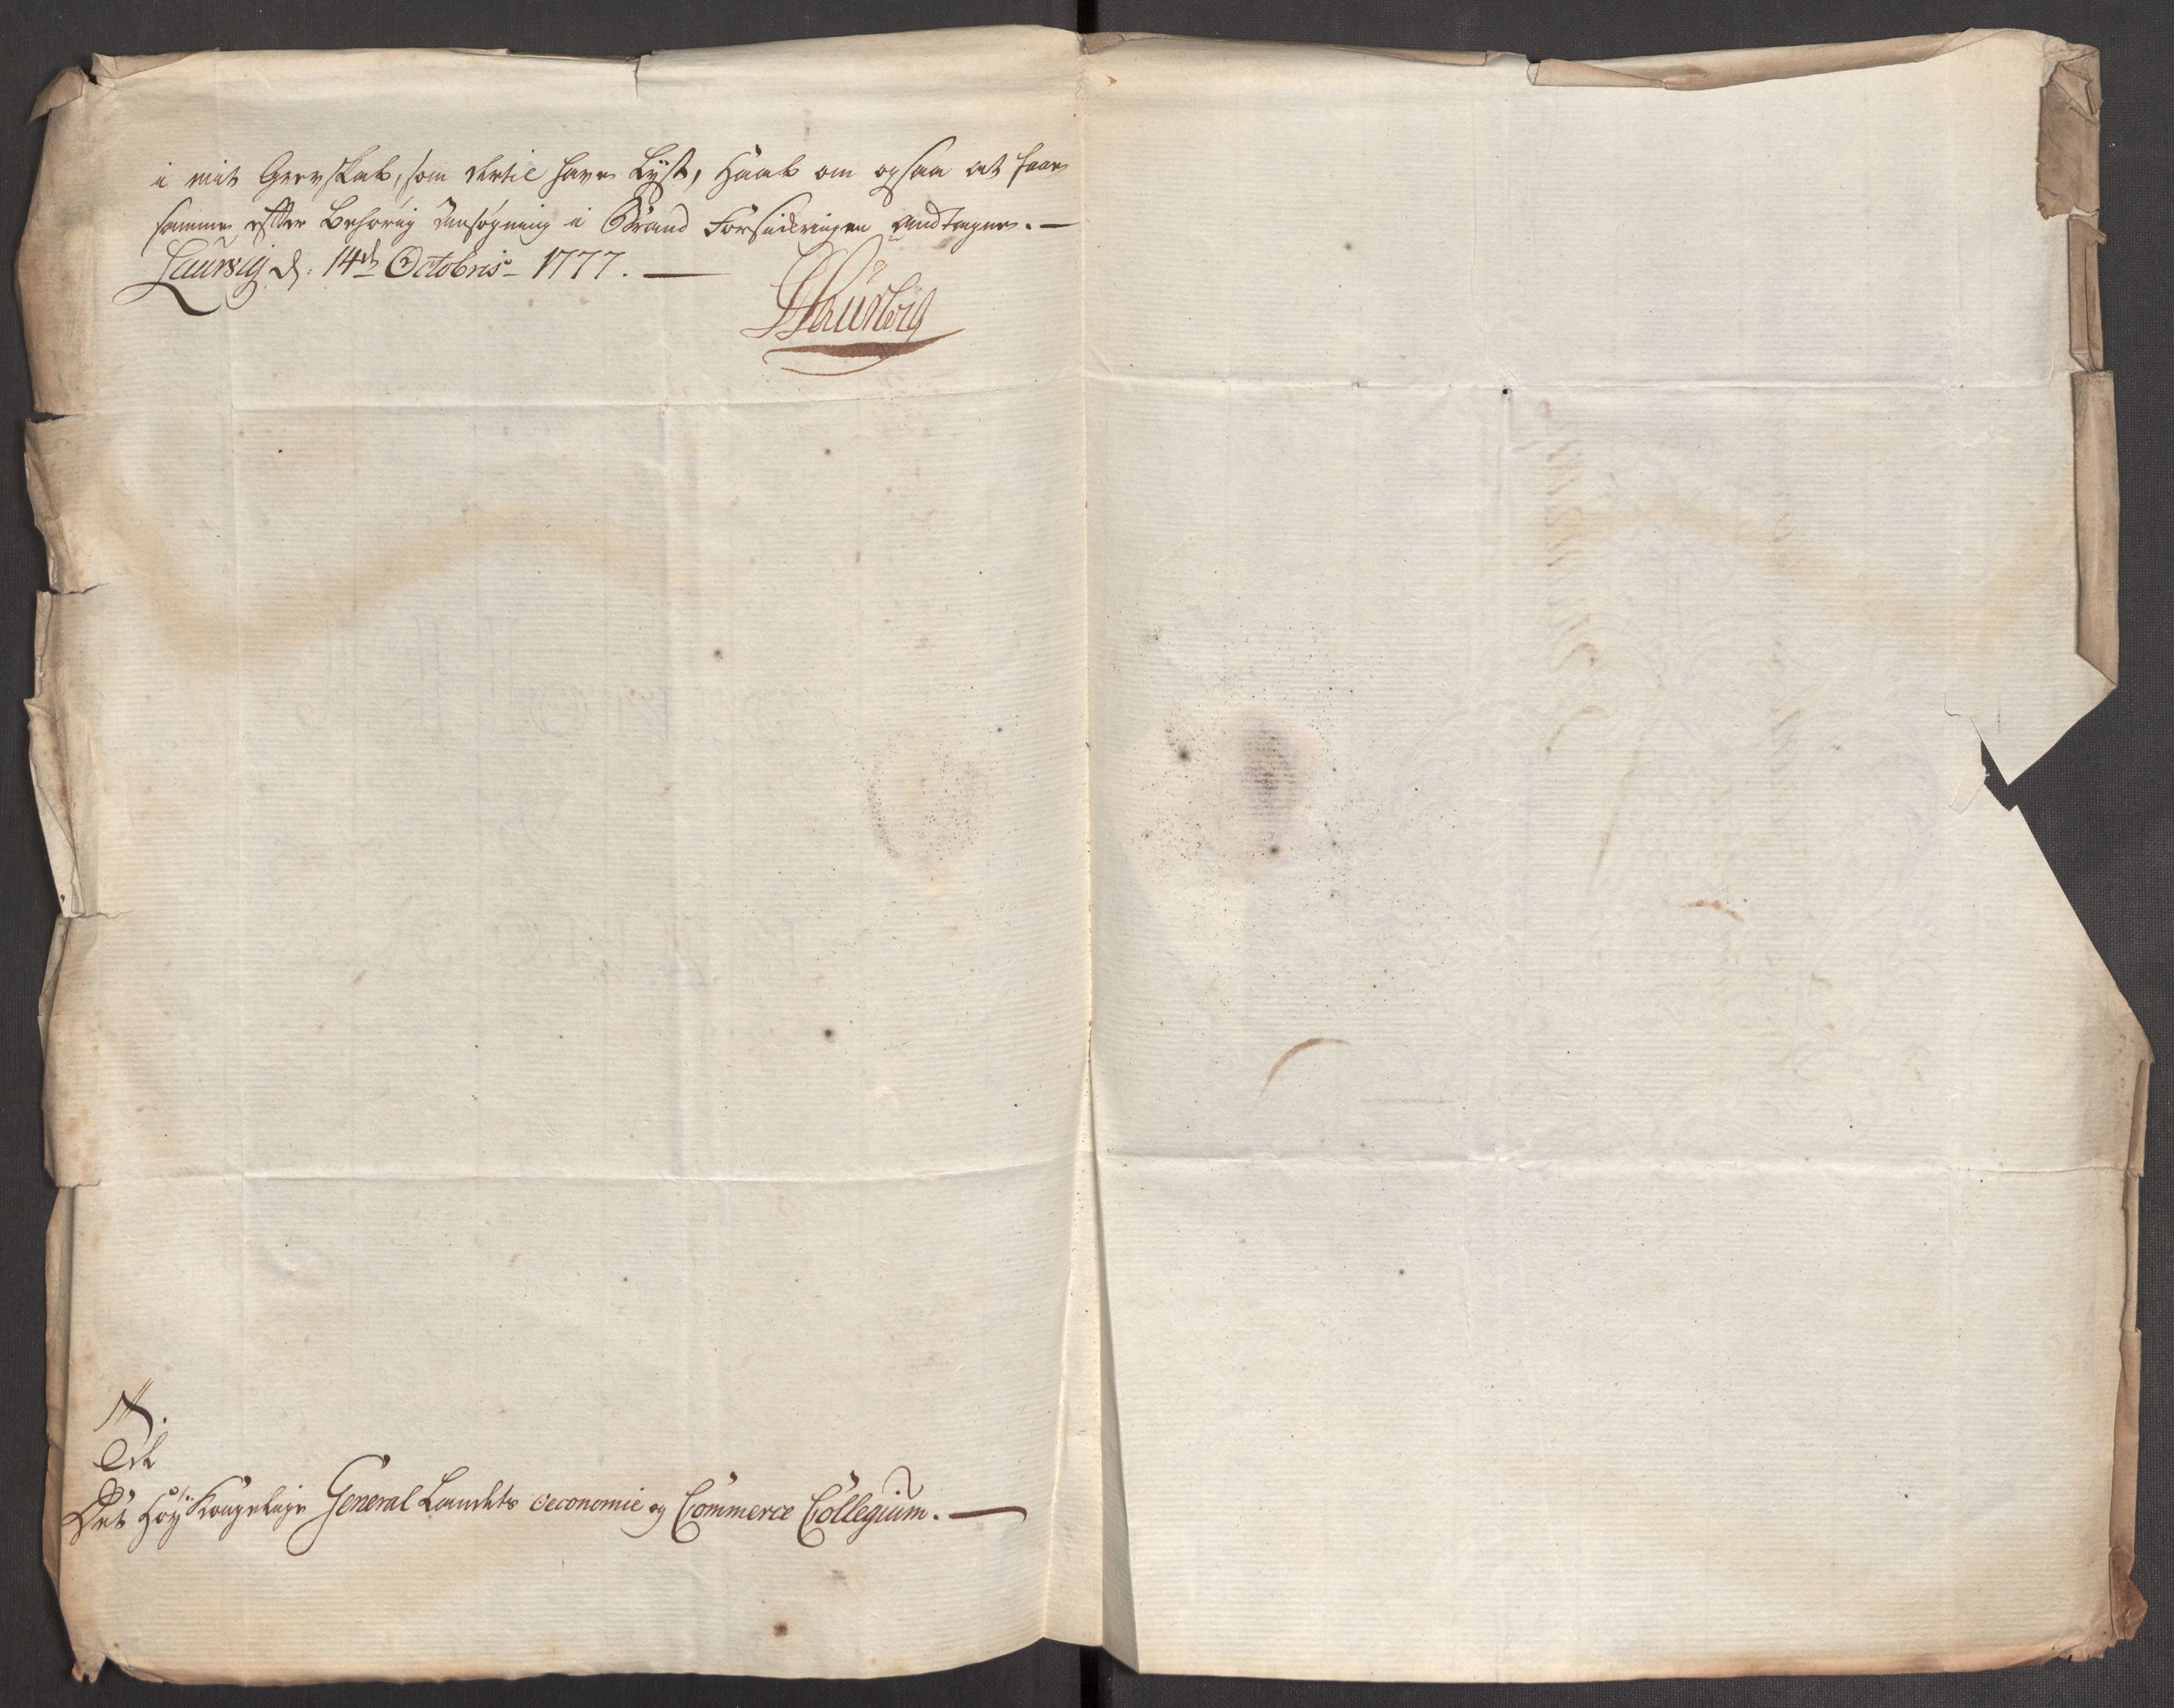 i mit Grevskab, som dertil have Lyst, Haab om ogsaa at faae
samme efter Behørig Ansøgning i Brand Forsickringen andtagne. —
Laurvig d: 14de Octobris 1777. —
Til
Det Høy Kongelige General Landets Oeconomie og Commerce Collegium. —